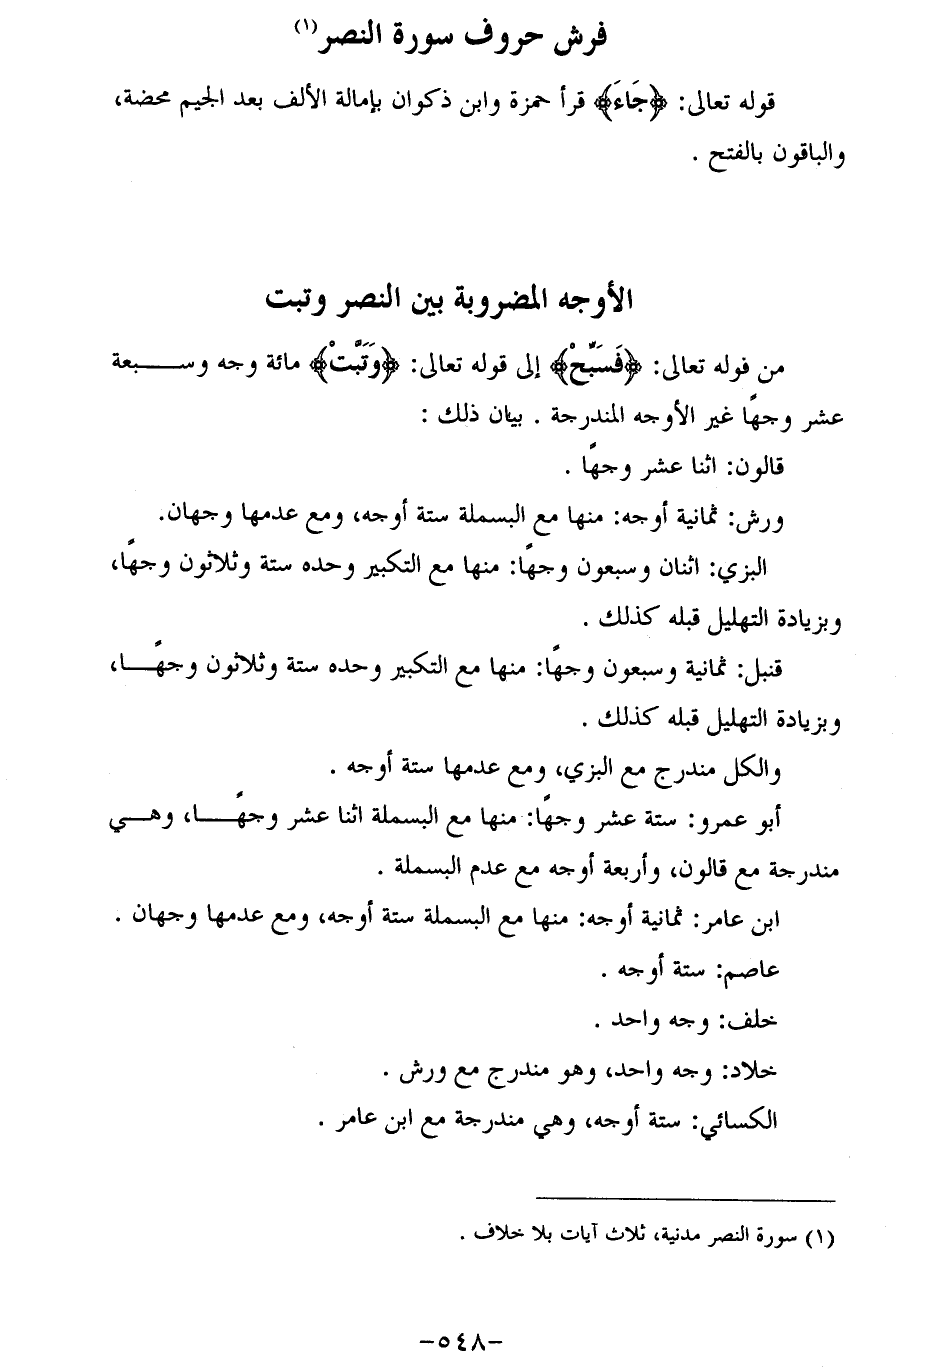 فرش حروف سورة النصر(١)
قوله تعالى: ﴿جَاءَ﴾ قرأ حمزة وابن ذكوان بإمالة الألف بعد الجيم محضة،
والباقون بالفتح .
الأوجه المضروبة بين النصر وتبت
من قوله تعالى: ﴿فَسَبِّحْ﴾ إلى قوله تعالى: ﴿وَتَبَّتْ﴾ مائة وجه وسـبعة
عشر وجهًا غير الأوجه المندرجة . بيان ذلك :
قالون: اثنا عشر وجهًا .
ورش: ثمانية أوجه: منها مع البسملة ستة أوجه، ومع عدمها وجهان.
البزي: اثنان وسبعون وجهًا: منها مع التكبير وحده ستة وثلاثون وجهًا،
وبزيادة التهليل قبله كذلك .
قنبل: ثمانية وسبعون وجهًا: منها مع التكبير وحده ستة وثلاثون وجهًـا،
وبزيادة التهليل قبله كذلك .
والكل مندرج مع البزي، ومع عدمها ستة أوجه .
أبو عمرو: ستة عشر وجهًا: منها مع البسملة اثنا عشر وجهًـا، وهـي
مندرجة مع قالون، وأربعة أوجه مع عدم البسملة .
ابن عامر: ثمانية أوجه: منها مع البسملة ستة أوجه، ومع عدمها وجهان .
عاصم: ستة أوجه .
خلف: وجه واحد .
خلاد: وجه واحد، وهو مندرج مع ورش .
الكسائي: ستة أوجه، وهي مندرجة مع ابن عامر .
(١) سورة النصر مدنية، ثلاث آيات بلا خلاف .
-٥٤٨-